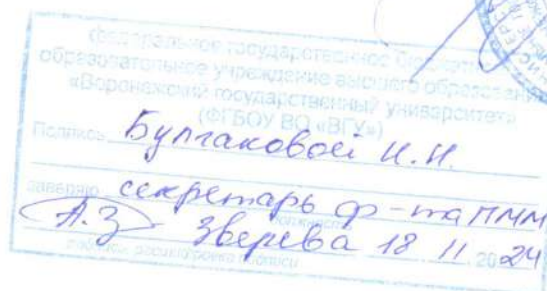 федеральное государственное бюджетное
образовательное учреждение высшего образования
«Воронежский государственный университет»
(ФГБОУ ВО «ВГУ»)
Подпись Булгаковой И.Н.
заверяю секретарь ф-та ПММ
должность
А.З Зверева 18 11 2024
подпись, расшифровка подписи